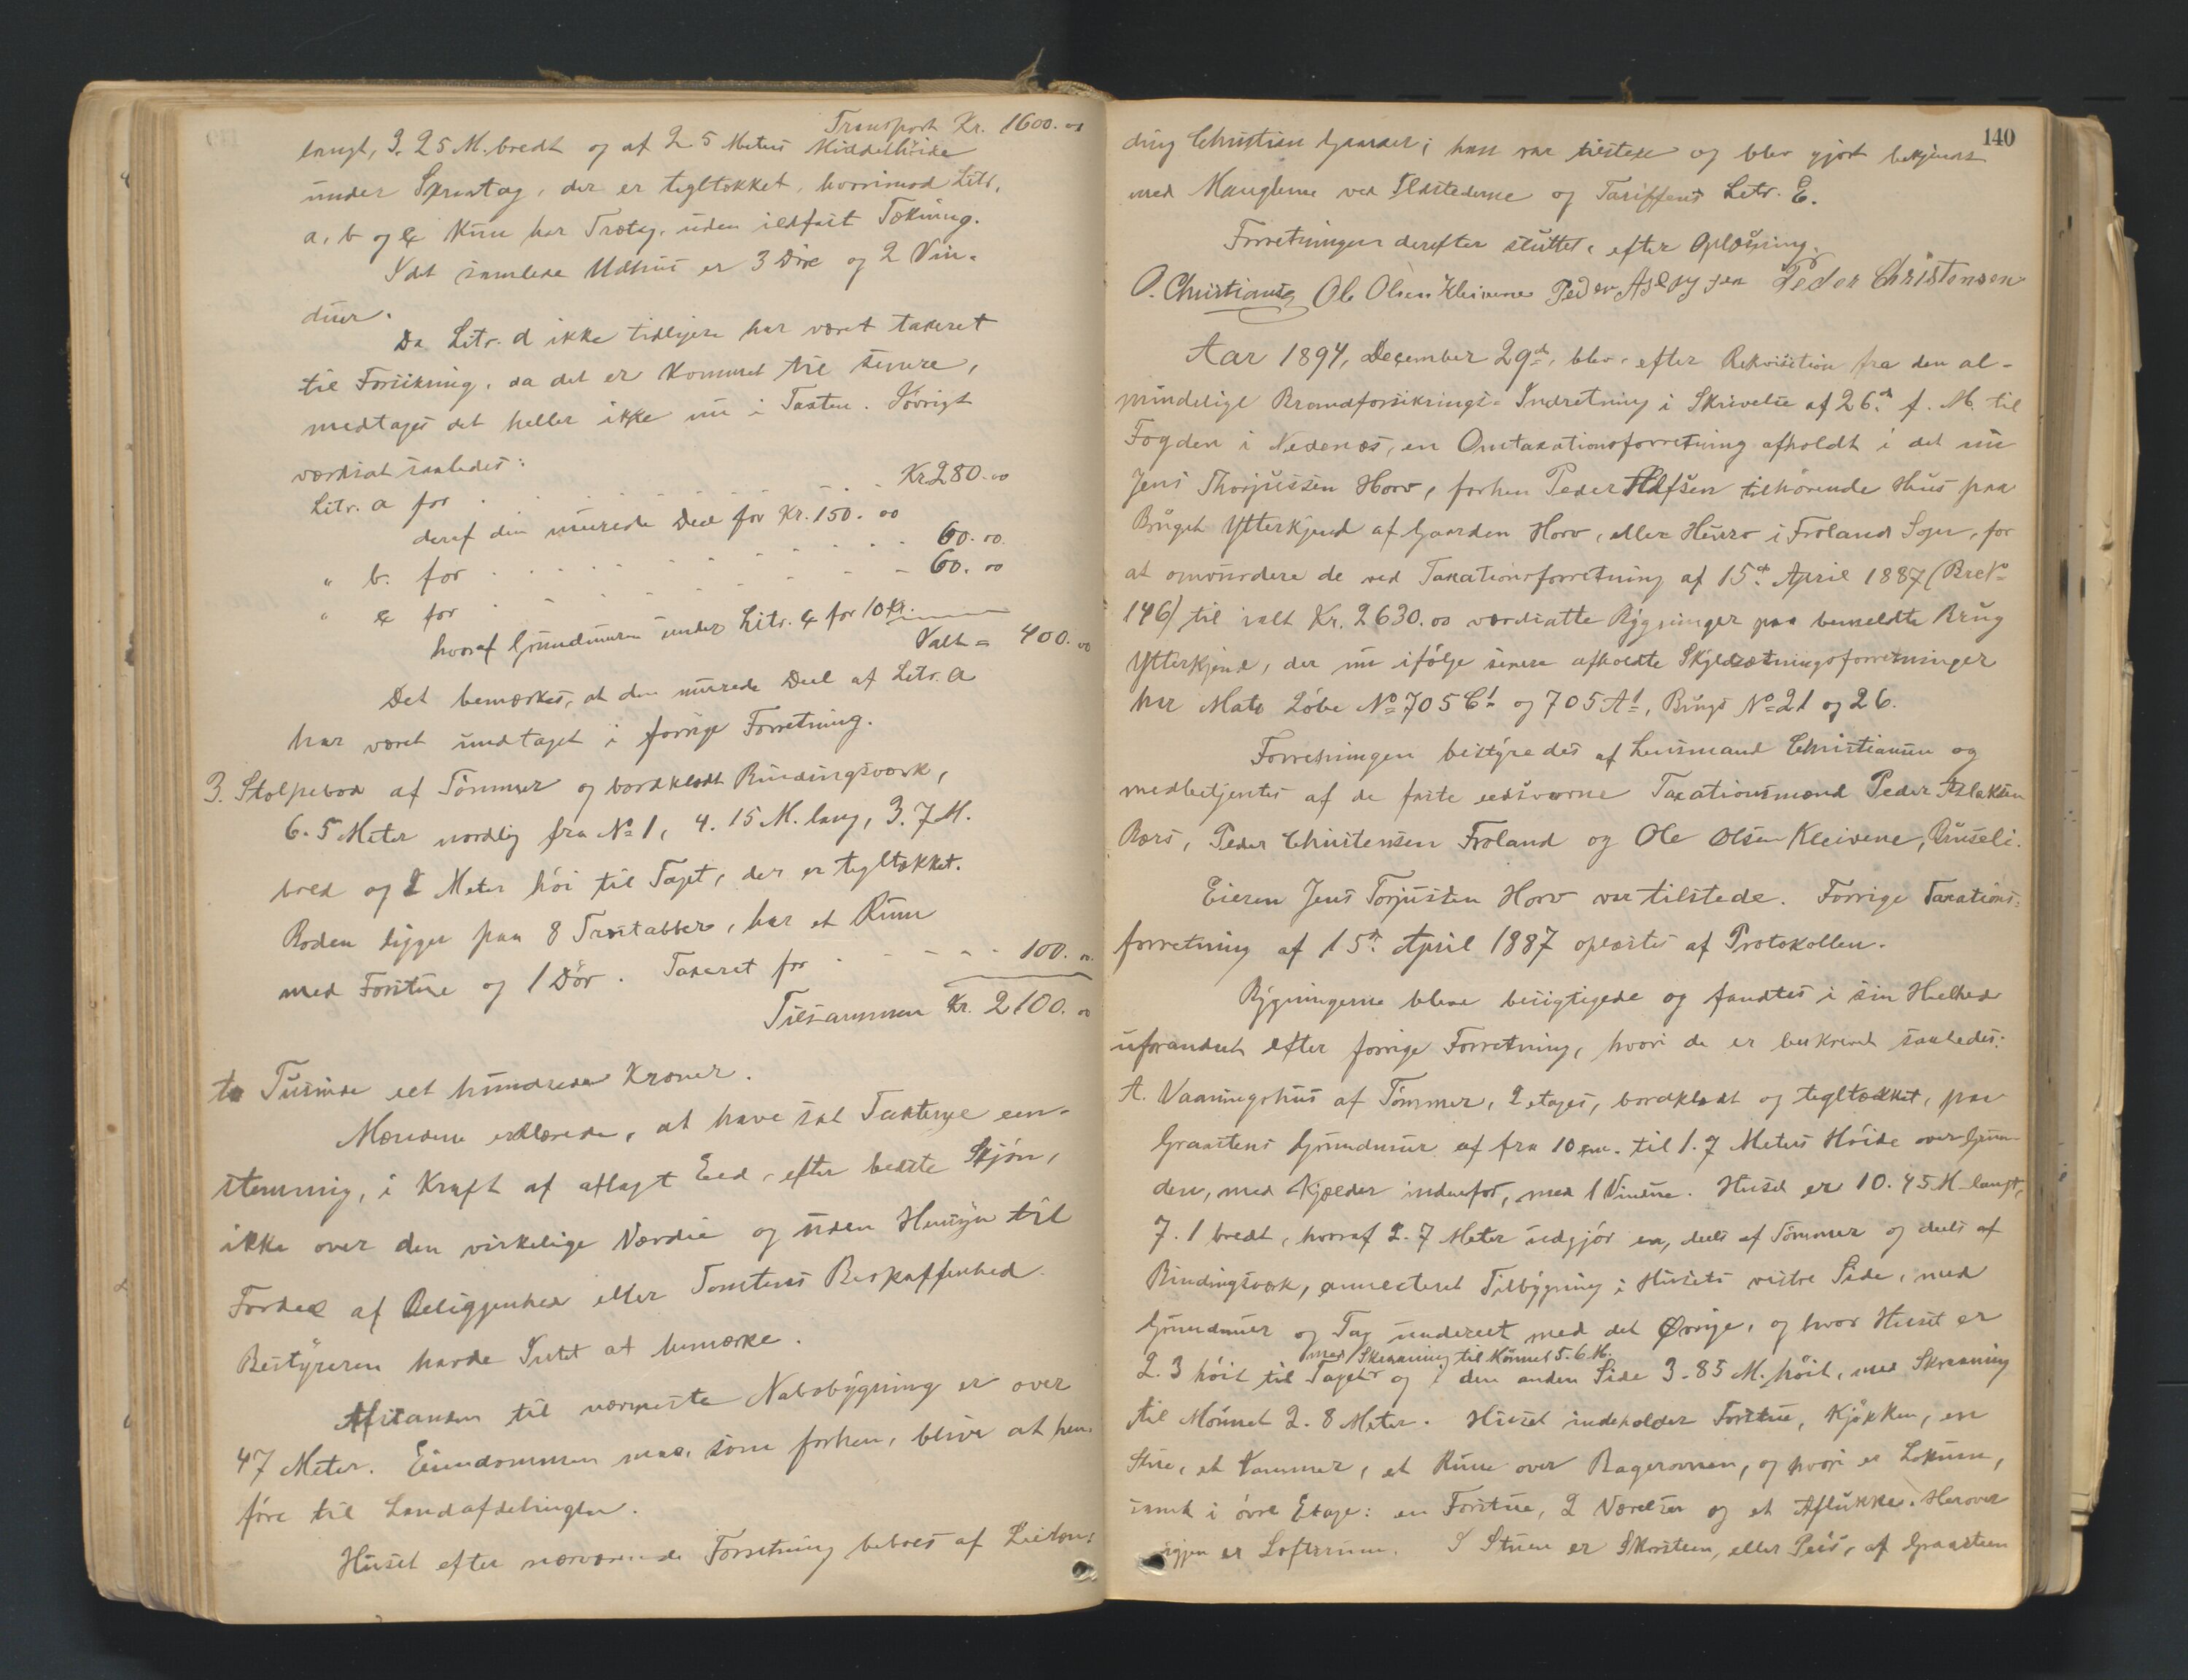 Transport Kr. 1600.00
langt, 3.25 M. bredt og af 2.5 Meters Middelhöide
under Sprentag, der er tegltækket, hvorimod Litr.
a, b og c kun har Trætag, uden ildfast Tækning.
I det samlede Udhus er 3 Döre og 2 Vin-
duer.
Da Litr. d ikke tidligere har været taxeret
til Forsikring, da det er kommet til senere,
medtages det heller ikke nu i Taxten. Iövrigt
værdsat saaledes:
Litr. a for - - - - Kr. 280.00
deraf den murede Deel for Kr. 150.00
" b. for - - - - 60.00
" c for - - - - 60.00
hvoraf Grundmuren under Litr. c for 10 Kr.
Ialt = 400.00
Det bemærkes, at den murede Deel af Litr. a
har været undtaget i forrige Forretning.
3. Stolpebod af Tömmer og bordklædt Bindingsværk,
6.5 Meter nordlig fra No 1, 4.15 M. lang, 3.7 M.
bred og 2 Meter höi til Taget, der er tegltækket.
Boden ligger paa 8 Træstabber, har et Rum
med Forstue og 1 Dör. Taxeret for - - - 100.00
Tilsammen Kr. 2100.00
to Tusinde eet hundrede Kroner.
Mændene erklærede, at have sat Taxterne een-
stemmig, i Kraft af aflagt Eed, efter bedste Skjön,
ikke over den virkelige Værdie og uden Hensyn til
Fordeel af Beliggenhed eller Tomtens Beskaffenhed.
Bestyreren havde Intet at bemærke.
Afstanden til nærmeste Nabobygning er over
47 Meter. Eiendommen maa, som forhen, blive at hen-
före til Landafdelingen.
Huset efter nærværende Forretning beboes af Leilen-
140
ding Christian Gaarder; han var tilstede og blev gjort bekjendt
med Manglerne ved Ildstederne og Tariffens Litr. E.
Forretningen derefter sluttet, efter Oplæsning.
O. Christiansen Ole Olsen Kleivene Peder Aslagsen Peder Christensen
Aar 1894, December 29de, blev, efter Rekvisition fra den al-
mindelige Brandforsikrings-Indretning i Skrivelse af 26de f. M. til
Fogden i Nedenæs, en Omtaxationsforretning afholdt i det nu
Jens Thorjussen Horv, forhen Peder Olsen tilhörende Hus paa
Bruget Ytterkjend af Gaarden Horv, eller Hurv i Froland Sogn, for
at omvurdere de ved Taxationsforretning af 15de April 1887 (Bref No
146) til ialt Kr. 2630.00 værdsatte Bygninger paa bemeldte Brug
Ytterkjend, der nu ifölge senere afholdte Skyldsætningsforretninger
har Matr. Löbe No 705 C1 og 705 A1, Brugs No 21 og 26.
Forretningen bestyredes af Lensmand Christiansen og
medbetjentes af de faste eedsvorne Taxationsmænd Peder Aslaksen
Bærs, Peder Christensen Froland og Ole Olsen Kleivene, Buseli.
Eieren Jens Torjussen Horv var tilstede. Forrige Taxations-
forretning af 15de April 1887 oplæstes af Protokollen.
Bygningerne bleve besigtigede og fandtes i sin Helhed
uforandret efter forrige Forretning, hvori de er beskrevet saaledes:
A. Vaaningshus af Tömmer, 2 etages, bordklædt og tegltækket, paa
Graastens Grundmur af fra 10 cm. til 1.7 Meters Höide over Grun-
den, med Kjælder indenfor, med 1 Vindue. Huset er 10.45 M langt,
7.1 bredt, hvoraf 2.7 Meter udgjör en, deels af Tömmer og deels af
Bindingsværk, annecteret Tilbygning i Husets vestre Side, med
Grundmur og Tag undereet med det Övrige, og hvor Huset er
med Skraaning til Mönnet 5.6 M.
2.3 höit til Taget og i den anden Side 3.85 M. höit, med Skraaning
til Mönnet 2.8 Meter. Huset indeholder Forstue, Kjökken, en
Stue, et Kammer, et Rum over Bagerovnen, og hvori er Lokum,
samt i övre Etage: en Forstue, 2 Værelser og et Aflukke. Herover
igjen er Loftsrum. I Stuen er Skorsteen, eller Peis, af Graasteen